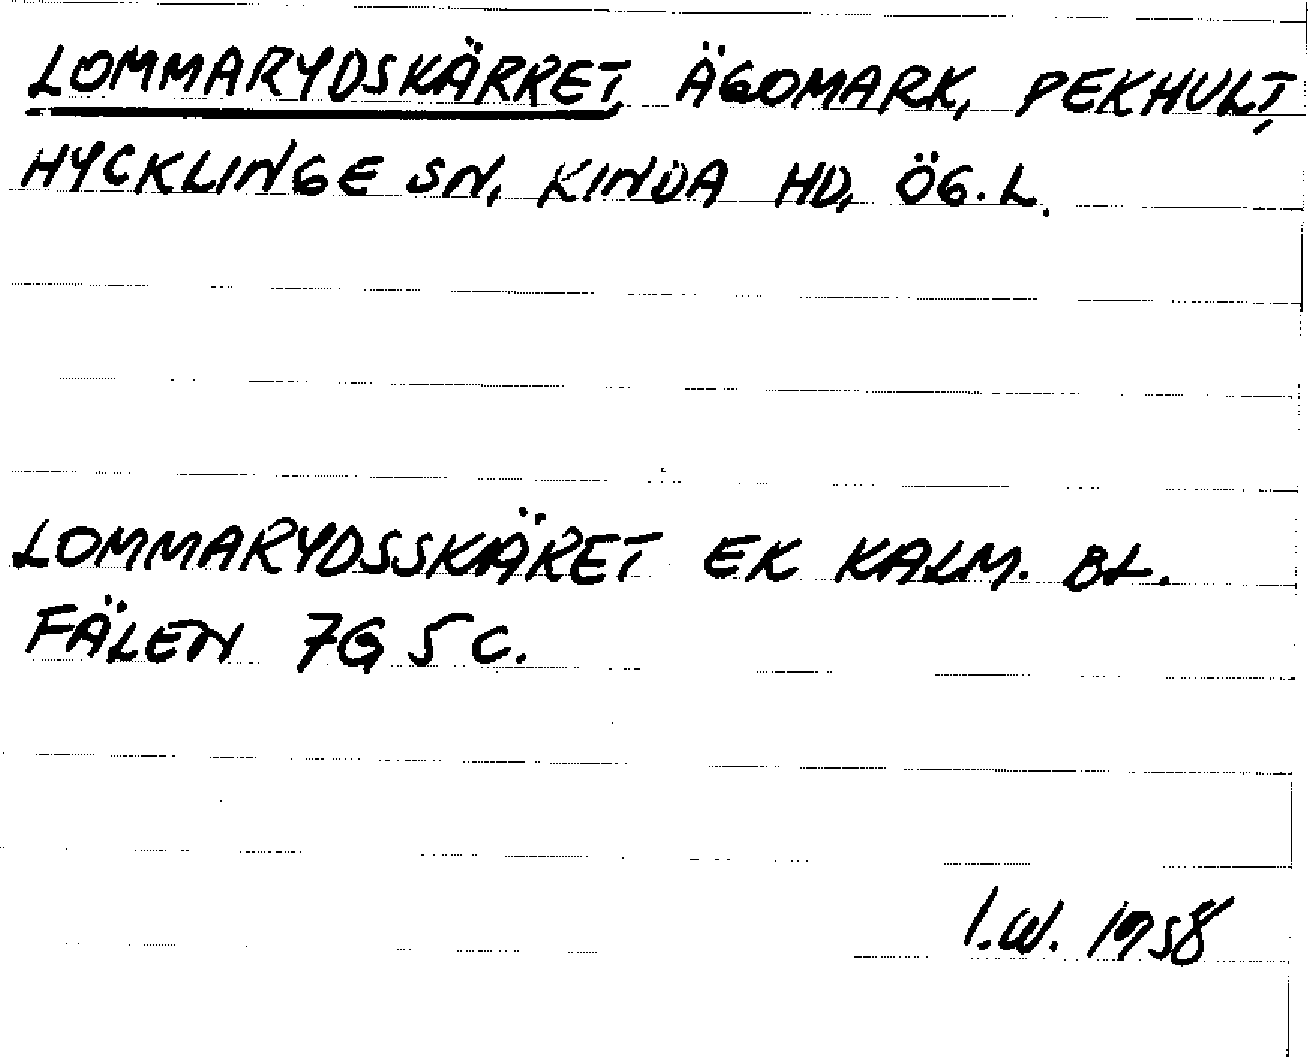 LOMMARYDSKÄRRET, ÄGOMARK, PEKHULT,
HYCKLINGE SN, KINDA HD, ÖG.L.
LOMMARYDSSKÄRET EK KALM. BL.
FÄLEN 7G 5 C.
I.W. 1958